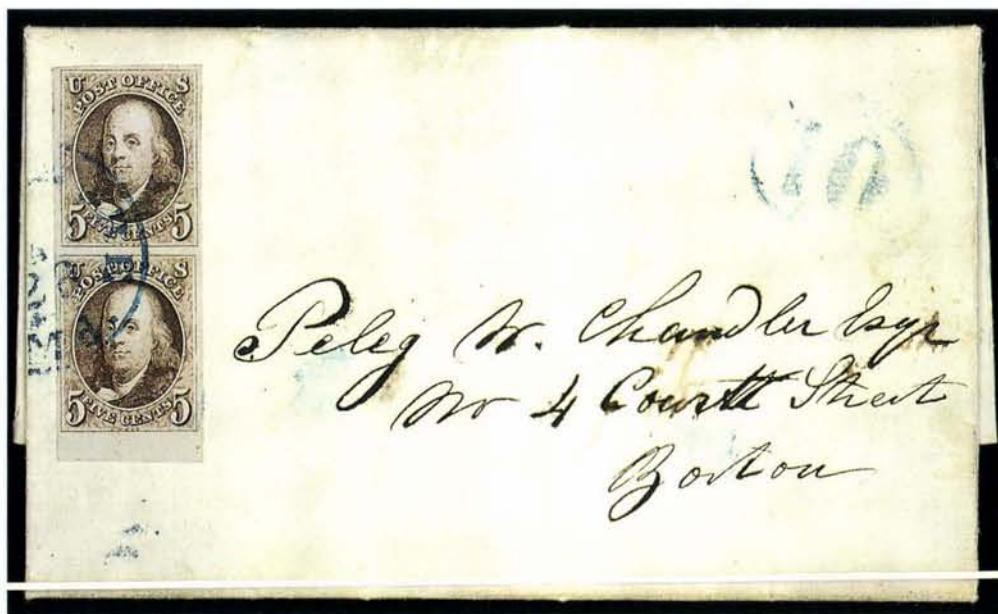 U S
POST OFFICE
5 FIVE CENTS 5
U S
POST OFFICE
5 FIVE CENTS 5
10
Peleg W. Chandler Esqr
No 4 Court Street
Boston